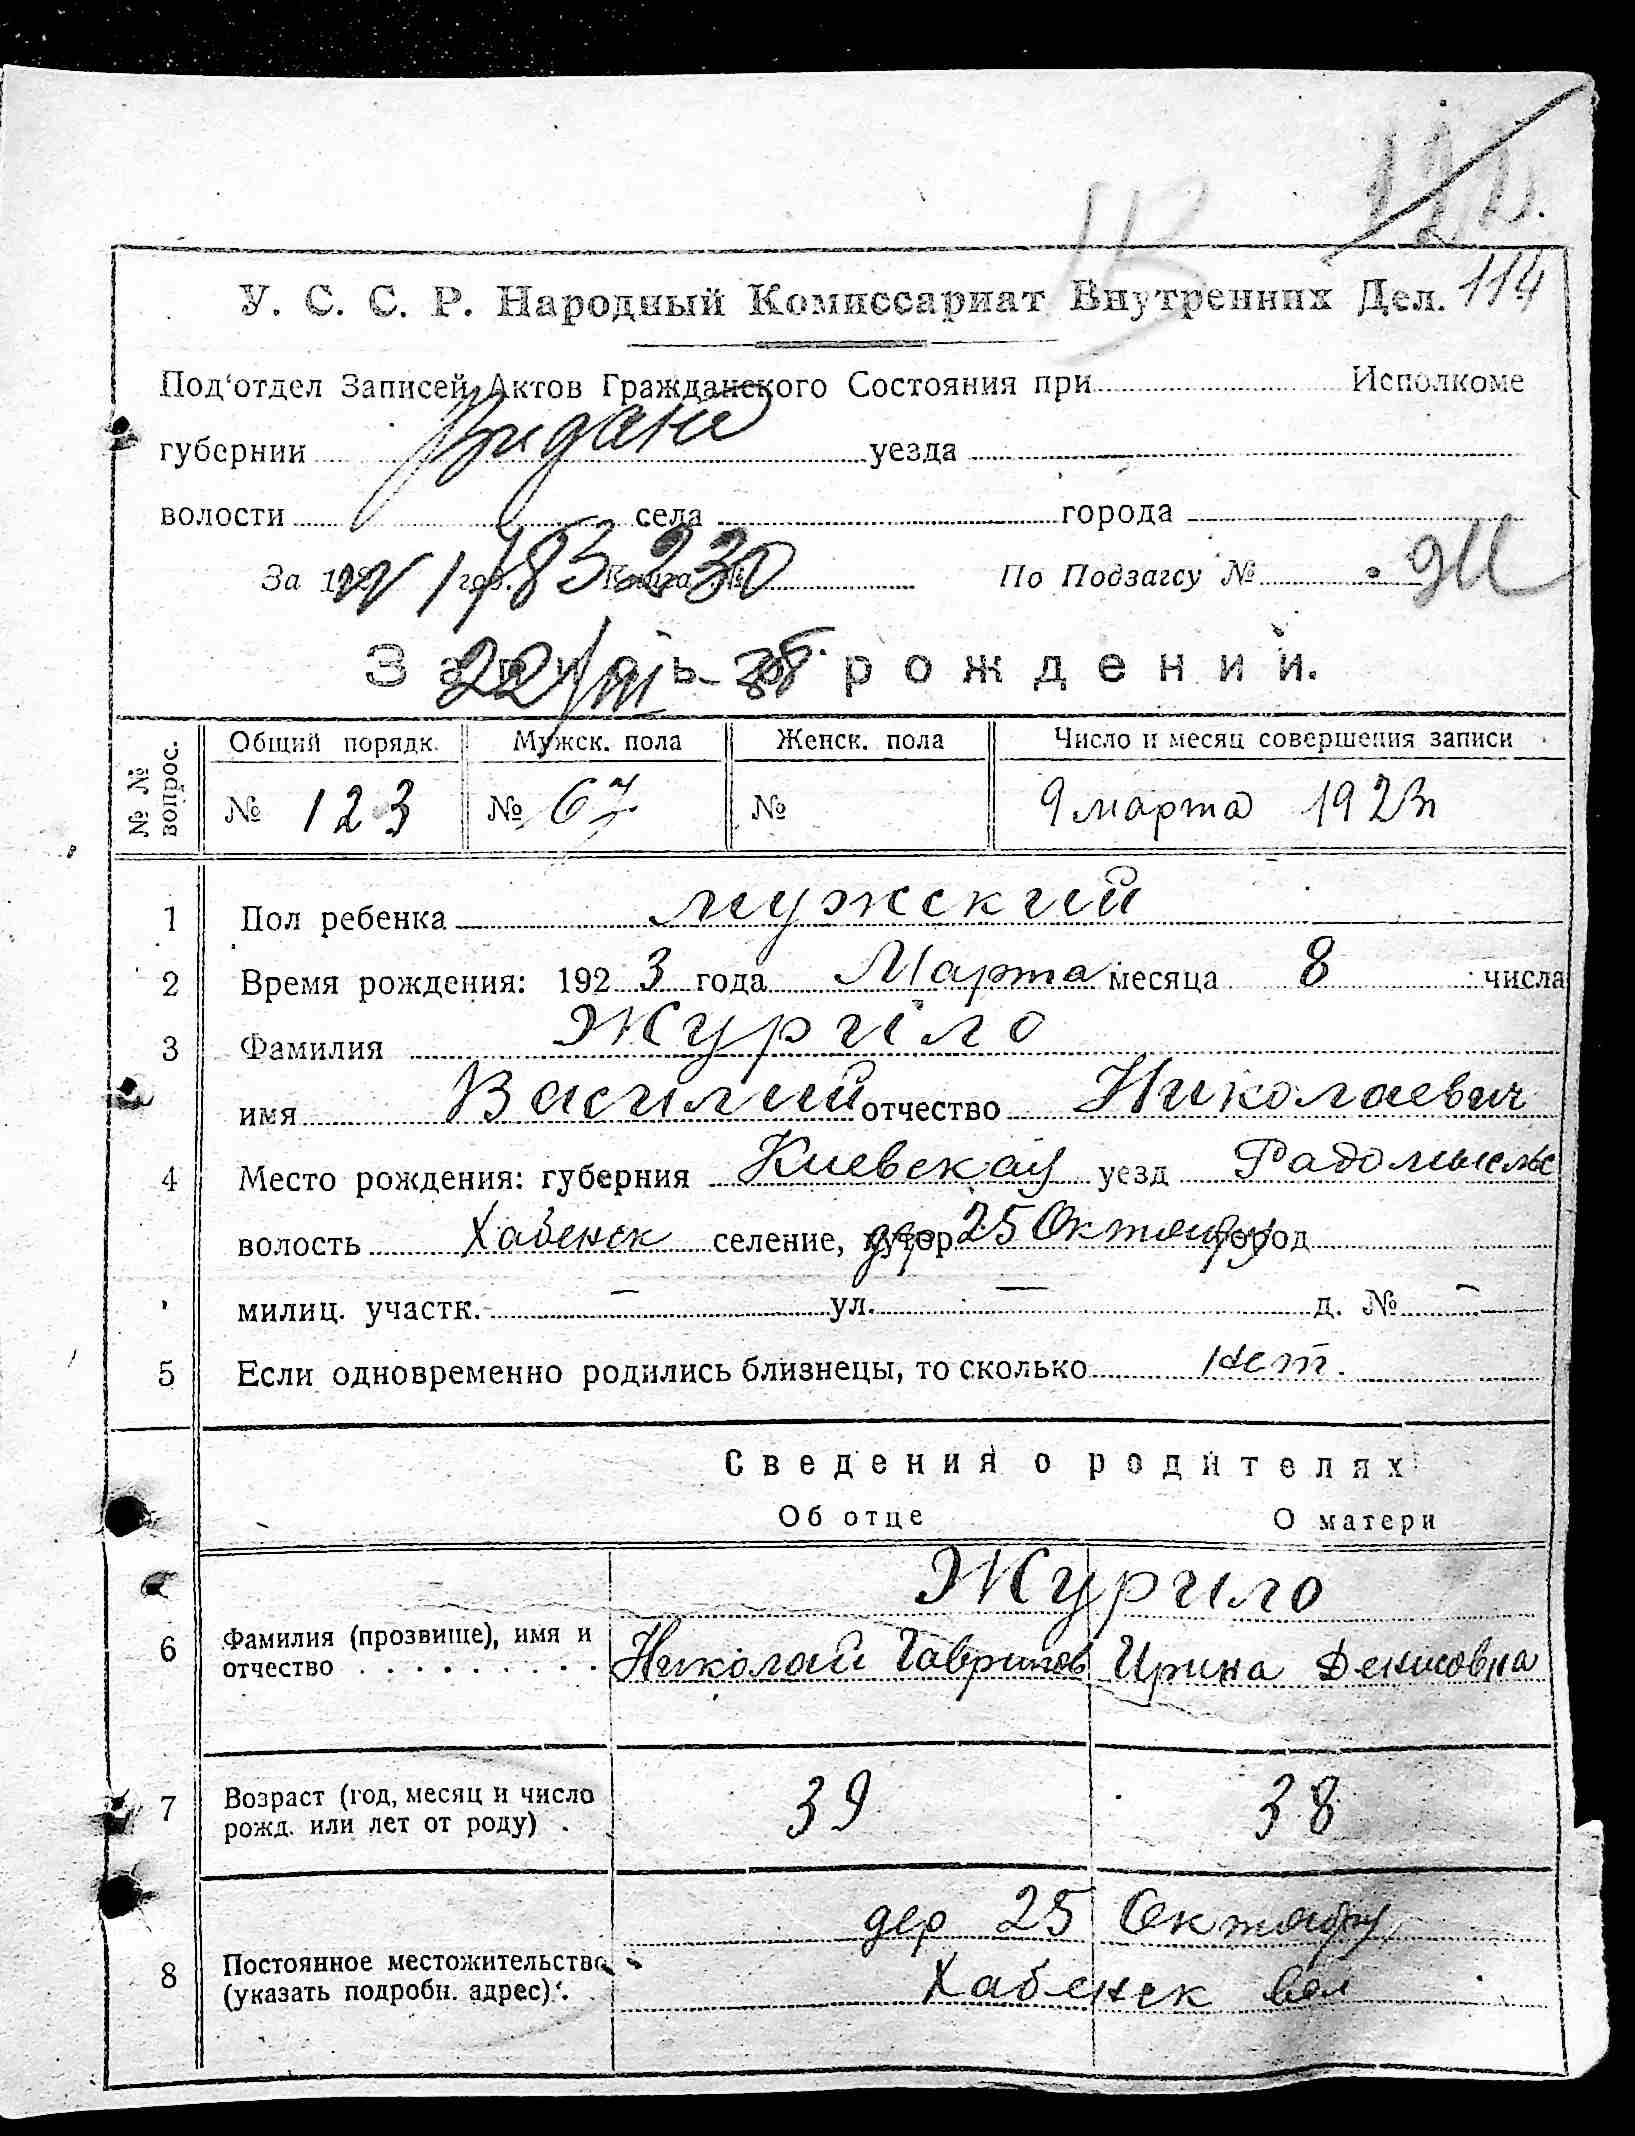 113
114
У. С. С. Р. Народный Комиссариат Внутренних Дел.
Под‘отдел Записей Актов Гражданского Состояния при Исполкоме
губернии уезда
волости села города
За 192 год. Книга № По Подзагсу №
22/III 38
Запись о рождении.
№№ вопрос.
Общий порядк. Мужск. пола Женск. пола Число и месяц совершения записи
№ 123 № 67 № 9 марта 1923
1 Пол ребенка мужский
2 Время рождения: 1923 года Марта месяца 8 числа
3 Фамилия Журило
имя Василий отчество Николаевич
4 Место рождения: губерния Киевская уезд Радомысльс
волость Хабенск селение, хутор дер 25 Октября город
милиц. участк. — ул. — д. № —
5 Если одновременно родились близнецы, то сколько нет.
Сведения о родителях
Об отце О матери
Журило
6 Фамилия (прозвище), имя и
отчество Николай Гаврилов Ирина Денисовна
7 Возраст (год, месяц и число
рожд. или лет от роду) 39 38
дер 25 Октября
8 Постоянное местожительство
(указать подробн. адрес) Хабенск вол